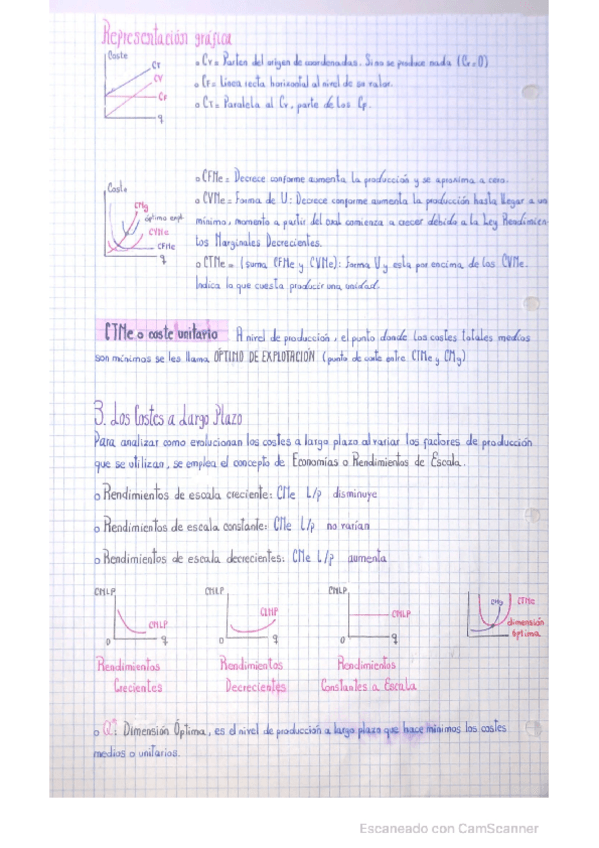 Representación gráfica
Coste
CT
CV
CF
q
o CV = Parten del origen de coordenadas. Si no se produce nada (CV = 0)
o CF = Línea recta horizontal al nivel de su valor.
o CT = Paralela al CV, parte de los CF.
Coste
CMg
óptimo expl.
CVMe
CFMe
q
o CFMe = Decrece conforme aumenta la producción y se aproxima a cero.
o CVMe = Forma de U: Decrece conforme aumenta la producción hasta llegar a un
mínimo, momento a partir del cual comienza a crecer debido a la Ley Rendimien-
tos Marginales Decrecientes.
o CTMe = (suma CFMe y CVMe): Forma U y esta por encima de los CVMe.
Indica lo que cuesta producir una unidad.
CTMe o coste unitario A nivel de producción, el punto donde los costes totales medios
son mínimos se les llama ÓPTIMO DE EXPLOTACIÓN (punto de corte entre CTMe y CMg)
3. Los Costes a Largo Plazo
Para analizar como evolucionan los costes a largo plazo al variar los factores de producción
que se utilizan, se emplea el concepto de Economías o Rendimientos de Escala.
o Rendimientos de escala creciente: CMe L/p disminuye
o Rendimientos de escala constante: CMe L/p no varían
o Rendimientos de escala decrecientes: CMe L/p aumenta
CMLP
CMLP
0
q
Rendimientos
Crecientes
CMLP
CLMP
0
q
Rendimientos
Decrecientes
CMLP
CMLP
0
q
Rendimientos
Constantes a Escala
CMg
CTMe
dimensión
óptima
o Dimensión Óptima, es el nivel de producción a largo plazo que hace mínimos los costes
medios o unitarios.
Escaneado con CamScanner